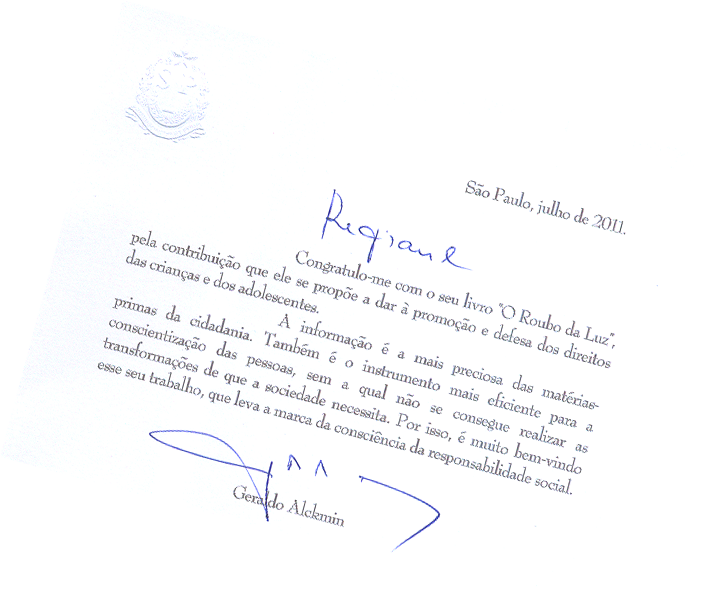 São Paulo, julho de 2011.
Regiane
Congratulo-me com o seu livro "O Roubo da Luz",
pela contribuição que ele se propõe a dar à promoção e defesa dos direitos
das crianças e dos adolescentes.
A informação é a mais preciosa das matérias-
primas da cidadania. Também é o instrumento mais eficiente para a
conscientização das pessoas, sem a qual não se consegue realizar as
transformações de que a sociedade necessita. Por isso, é muito bem-vindo
esse seu trabalho, que leva a marca da consciência da responsabilidade social.
Geraldo Alckmin